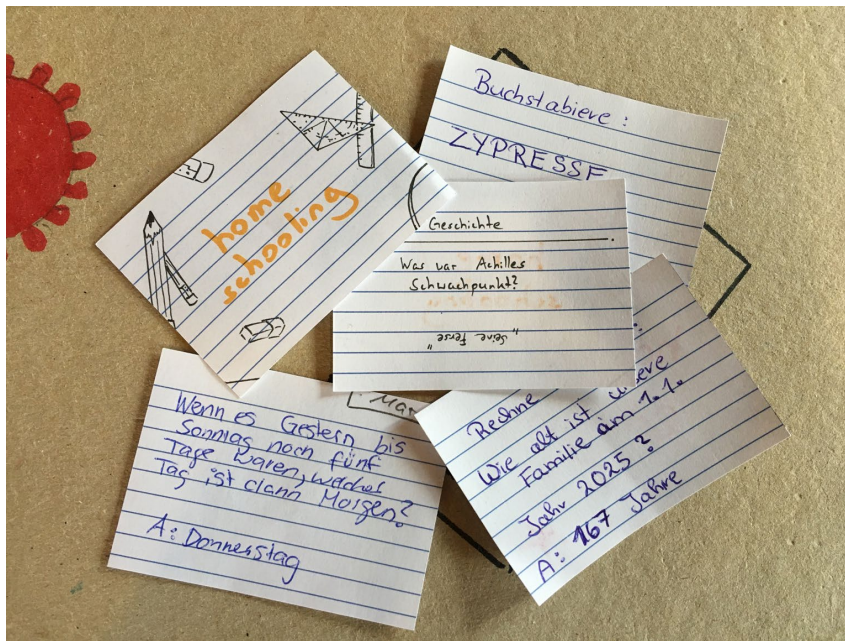 home
schooling
Buchstabiere :
ZYPRESSE
Geschichte
Was war Achilles
Schwachpunkt?
"seine Ferse"
Wenn es Gestern bis
Sonntag noch fünf
Tage waren, welcher
Tag ist dann Morgen?
A: Donnerstag
Rechne
Wie alt ist unsere
Familie am 1.1.
Jahr 2025?
A: 167 Jahre